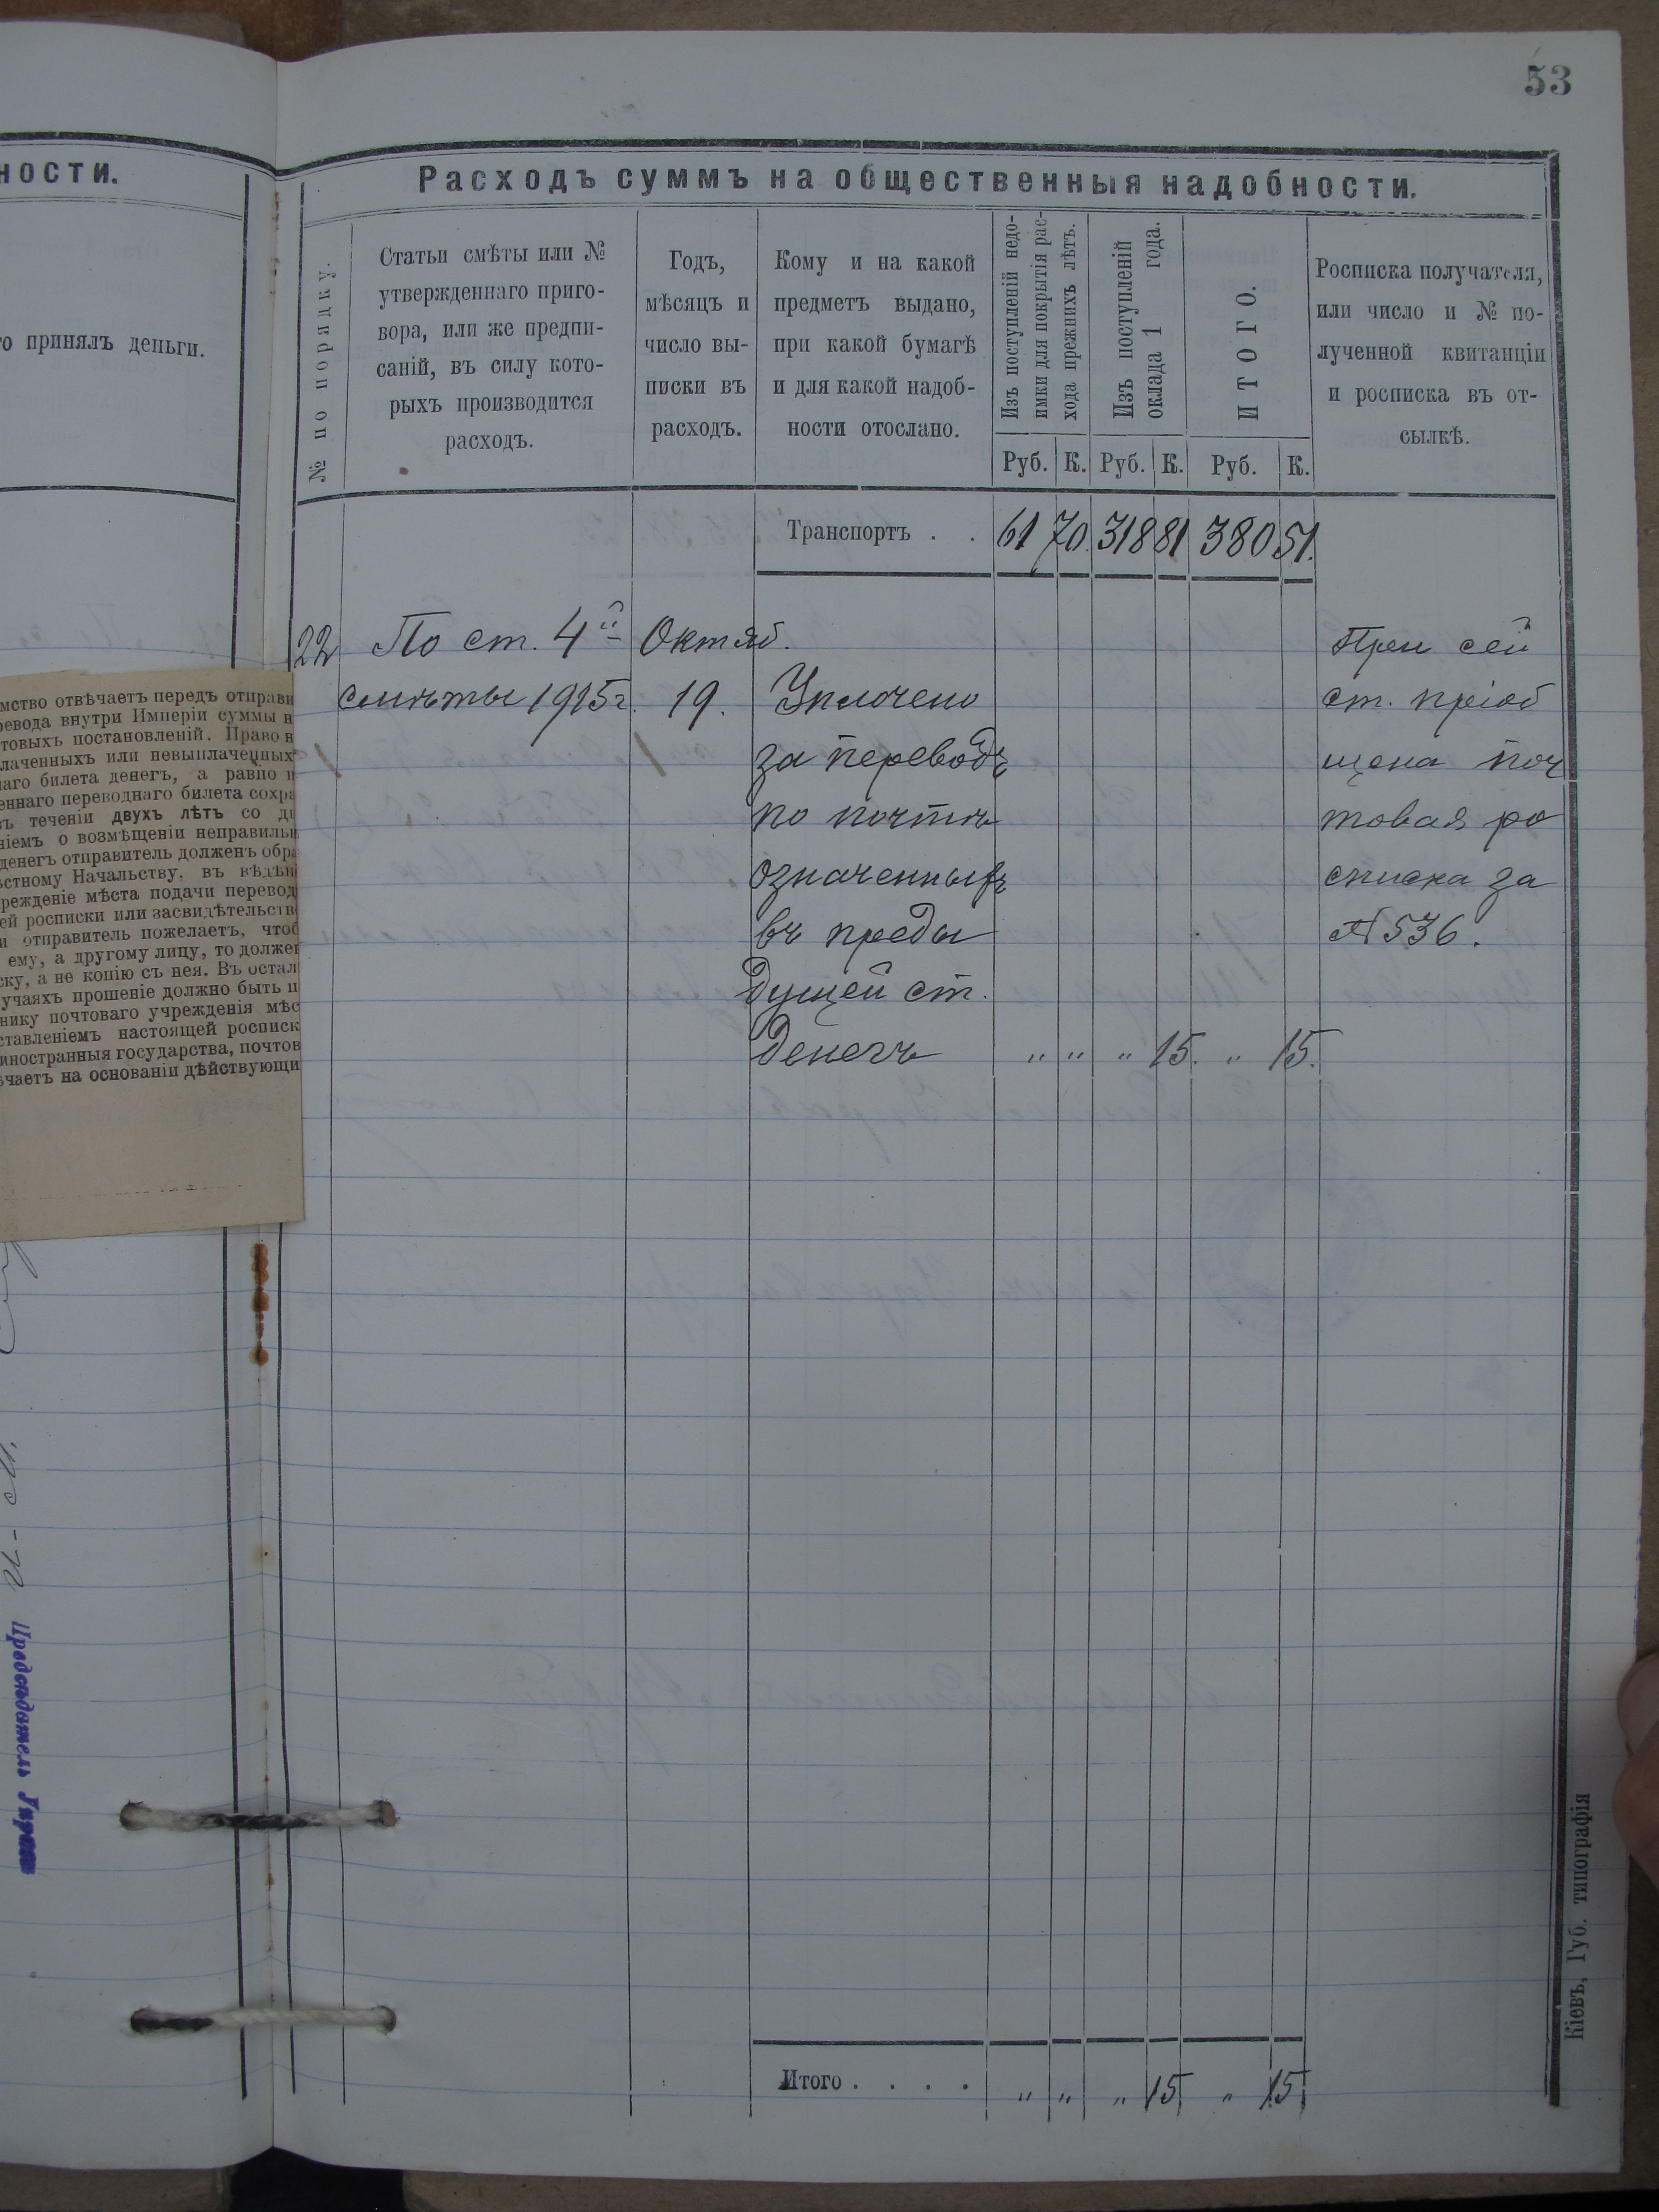 53
ности.
го принялъ деньги.
мство отвѣчаетъ передъ отправи
ревода внутри Имперіи суммы н
товыхъ постановленій. Право н
лаченныхъ или невыплаченныхъ
наго билета денегъ, а равно и
еннаго переводнаго билета сохра
въ теченіи двухъ лѣтъ со д
ніемъ о возмѣщеніи неправильн
денегъ отправитель долженъ обра
ѣстному Начальству, въ вѣдѣн
реждение мѣста подачи перевод
ей росписки или засвидѣтельств
и отправитель пожелаетъ, чтоб
ему, а другому лицу, то должен
ску, а не копію съ нея. Въ остал
учаяхъ прошеніе должно быть п
нику почтоваго учрежденія мѣс
ставленіемъ настоящей росписк
иностранныя государства, почтов
ѣчаетъ на основаніи дѣйствующи
Предсѣдатель
Расходъ суммъ на общественныя надобности.
№ по порядку.
Статьи смѣты или №
утвержденнаго приго-
вора, или же предпи-
саній, въ силу кото-
рыхъ производится
расходъ.
Годъ,
мѣсяцъ и
число вы-
писки въ
расходъ.
Кому и на какой
предметъ выдано,
при какой бумагѣ
и для какой надоб-
ности отослано.
Изъ поступленій недо-
имки для покрытія рас-
хода прежнихъ лѣтъ.
Изъ поступленій
оклада 1 года.
ИТОГО.
Росписка получателя,
или число и № по-
лученной квитанціи
и росписка въ от-
сылкѣ.
Руб. К. Руб. К. Руб. К.
Транспортъ . . 61 70. 318 81 380 51.
22 По ст. 4й
смѣты 1915 г.
Октяб.
19.
Уплочено
за переводъ
по почтѣ
означенныхъ
въ преды
дущей ст.
денегъ „ „ „ 15. „ 15.
При сей
ст. пріоб
щена поч
товая ро
списка за
№ 536.
Итого . . . . „ „ „ 15 „ 15.
Кіевъ, Губ. типографія